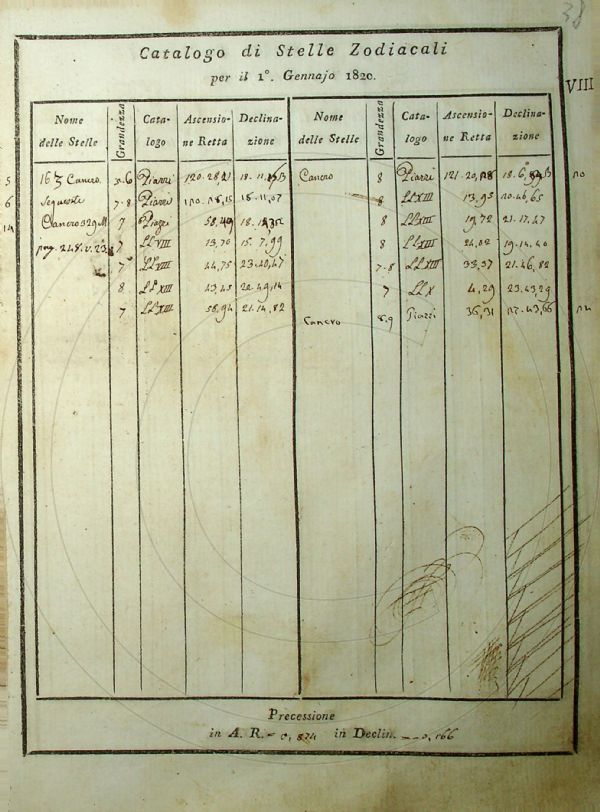 38
Catalogo di Stelle Zodiacali
per il 1°. Gennajo 1820.
VIII
Nome delle Stelle Grandezza Catalogo Ascensione Retta Declinazione Nome delle Stelle Grandezza Catalogo Ascensione Retta Declinazione
5 16 ζ Cancro 5-6 Piazzi 120.28, 18.11, Cancro 8 Piazzi 121.20, 18.6,
6 seguente 7-8 Piazzi 18.11,07 8 LLXIII 13,95 20.46,65
14 Cancro 329 M 7 Piazzi 58,49 18. 8 LLXIII 19,72 21.17,47
pag. 248. v. 23 7 LLVIII 13,70 15.7,99 8 LLXIII 24,02 19.14,40
7 LLVIII 44,75 23.20,47 7-8 LLXIII 33,37 21.46,82
8 LLXIII 43,45 20.49,14 7 LLX 4,29 23.43,29
7 LLXIII 58,94 21.14,82 Cancro 8.9 Piazzi 36,31 43,66
Precessione
in A. R. = 0,874 in Declin. — 0,166